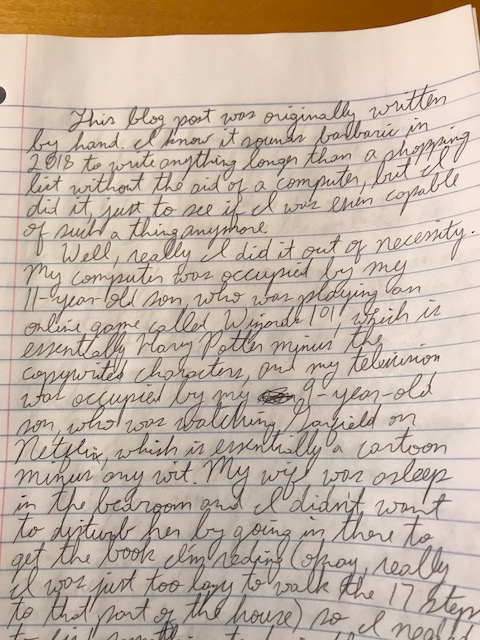 This blog post was originally written
by hand. I know it sounds barbaric in
2018 to write anything longer than a shopping
list without the aid of a computer, but I
did it, just to see if I was even capable
of such a thing anymore.
Well, really I did it out of necessity.
My computer was occupied by my
11-year-old son, who was playing an
online game called Wizards 101, which is
essentially Harry Potter minus the
copywrited characters, and my television
was occupied by my 9-year-old
son, who was watching Garfield on
Netflix, which is essentially a cartoon
minus any wit. My wife was asleep
in the bedroom and I didn't want
to disturb her by going in there to
get the book I'm reading (okay, really
I was just too lazy to walk the 17 steps
to that part of the house) so I needed